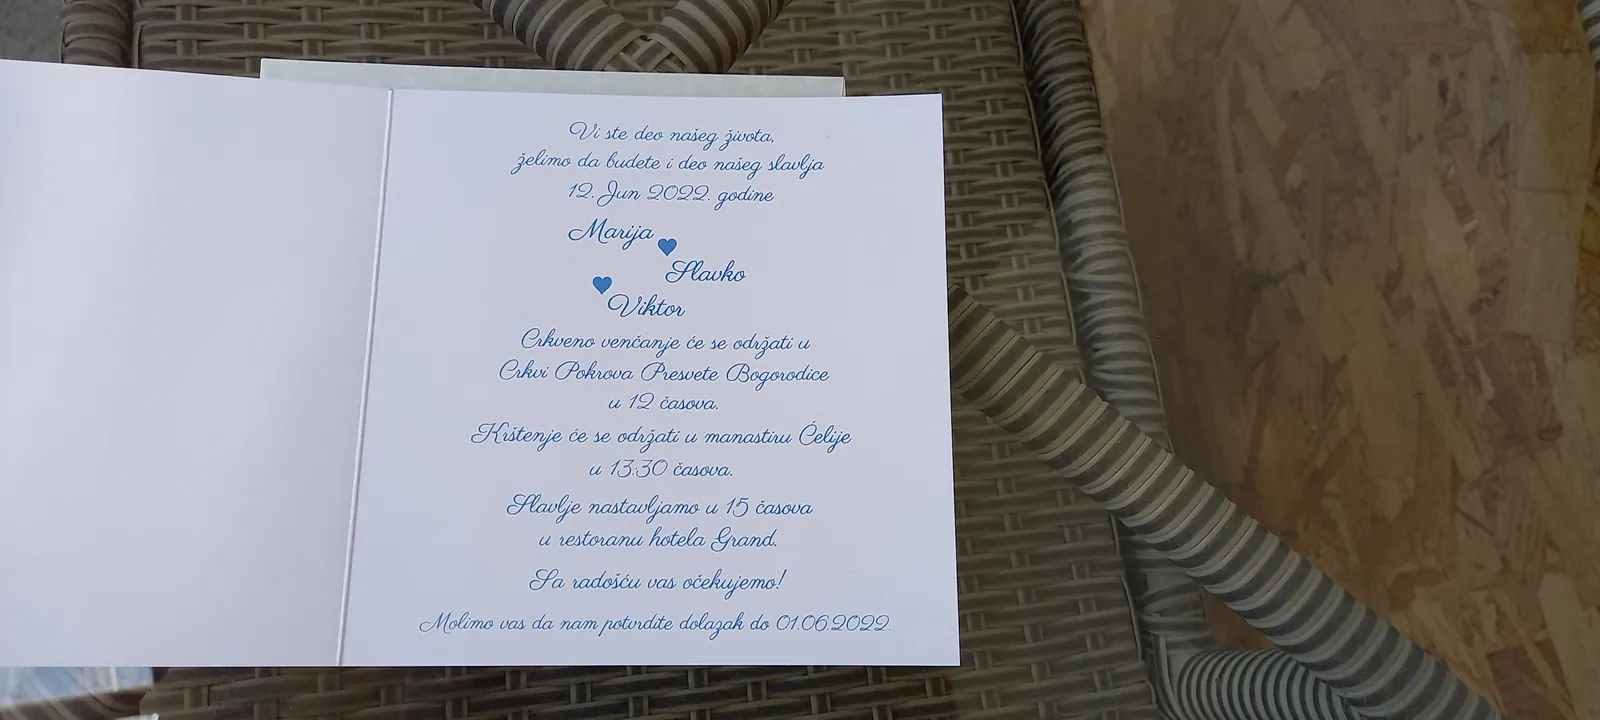 Vi ste deo našeg života,
želimo da budete i deo našeg slavlja
12. Jun 2022. godine
Marija
Slavko
Viktor
Crkveno venčanje će se održati u
Crkvi Pokrova Presvete Bogorodice
u 12 časova.
Krštenje će se održati u manastiru Ćelije
u 13:30 časova.
Slavlje nastavljamo u 15 časova
u restoranu hotela Grand.
Sa radošću vas očekujemo!
Molimo vas da nam potvrdite dolazak do 01.06.2022.